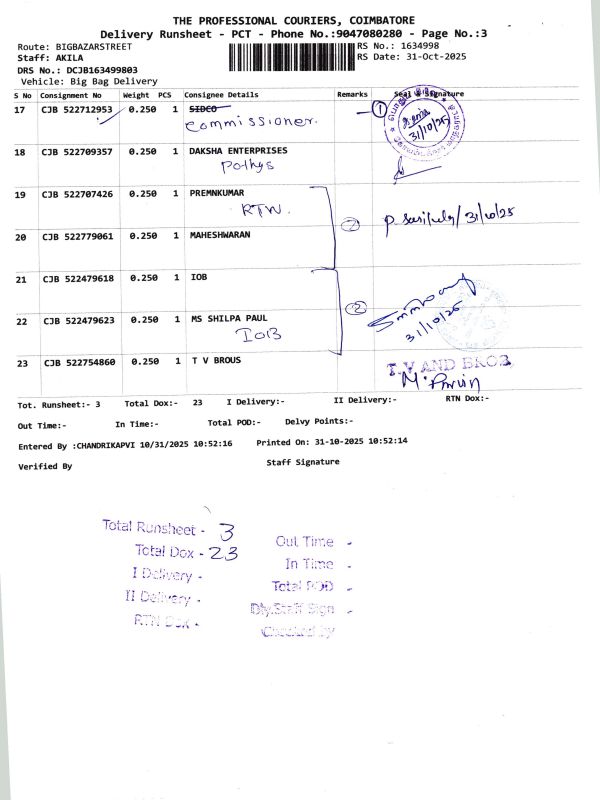 THE PROFESSIONAL COURIERS, COIMBATORE
Delivery Runsheet - PCT - Phone No.:9047080280 - Page No.:3
Route: BIGBAZARSTREET
RS No.: 1634998
Staff: AKILA
RS Date: 31-Oct-2025
DRS No.: DCJB163499803
Vehicle: Big Bag Delivery
S No Consignment No Weight PCS Consignee Details Remarks Seal & Signature
17 CJB 522712953 0.250 1 SIDCO 1
Commissioner.
31/10/25
18 CJB 522709357 0.250 1 DAKSHA ENTERPRISES
Pothys
19 CJB 522707426 0.250 1 PREMNKUMAR
RTW.
31/10/25
20 CJB 522779061 0.250 1 MAHESHWARAN
21 CJB 522479618 0.250 1 IOB
2
22 CJB 522479623 0.250 1 MS SHILPA PAUL
IOB
31/10/25
23 CJB 522754860 0.250 1 T V BROUS
T.V AND BROS
Tot. Runsheet:- 3 Total Dox:- 23 I Delivery:- II Delivery:- RTN Dox:-
Out Time:- In Time:- Total POD:- Delvy Points:-
Entered By :CHANDRIKAPVI 10/31/2025 10:52:16 Printed On: 31-10-2025 10:52:14
Verified By Staff Signature
Total Runsheet - 3
Total Dox - 23
I Delivery -
II Delivery -
RTN Dox -
Out Time -
In Time -
Total POD -
Dly.Staff Sign -
Checked by